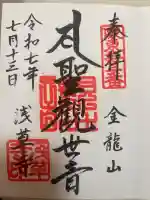 奉拝
金龍山
聖観世音
浅草寺
令和七年
七月十三日